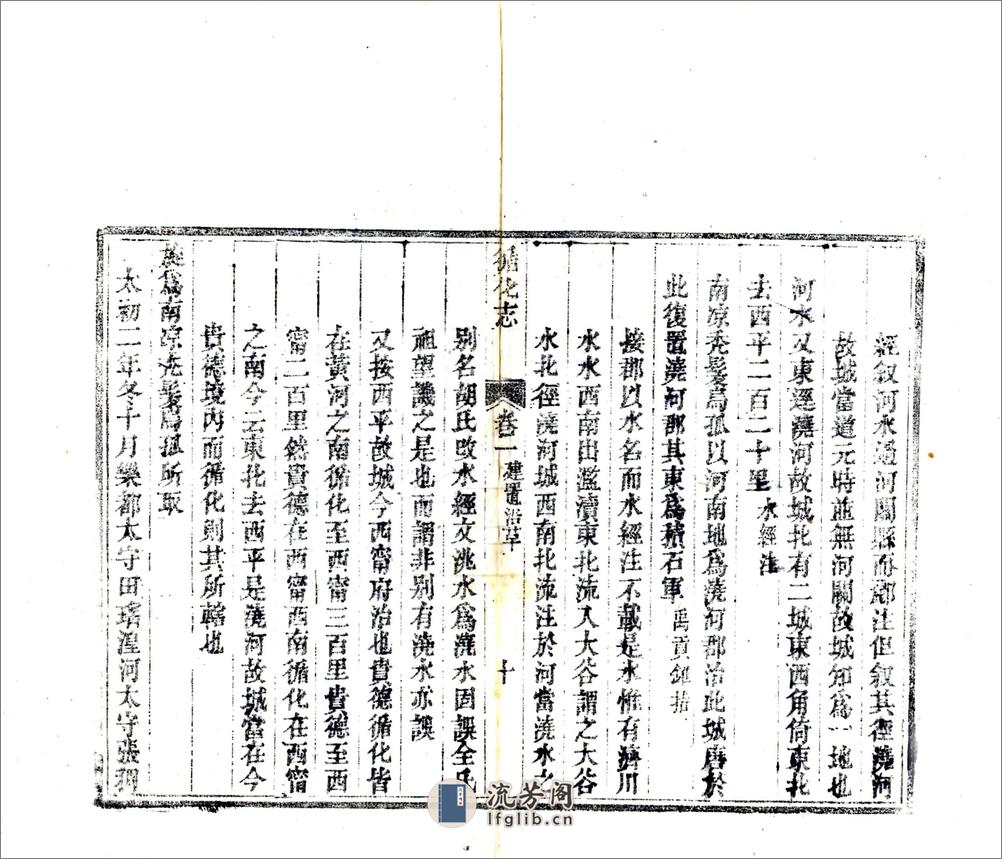 經敘河水過河關縣而酈注但敘其徑澆河
故城當道元時並無河關故城知爲一地也
河水又東逕澆河故城北有二城東西角倚東北
去西平二百二十里水經注
南凉禿髮烏孤以河南地爲澆河郡治此城唐於
此復置澆河郡其東爲積石軍禹貢錐指
按郡以水名而水經注不載是水惟有濟川
水水西南出濫瀆東北流入大谷謂之大谷
水北徑澆河城西南北流注於河當澆水之
循化志
卷一
建置沿革
十
别名胡氏改水經文洮水爲澆水因誤全氏
祖望譏之是也而謂非别有澆水亦誤
又按西平故城今西甯府治也貴德循化皆
在黃河之南循化至西甯三百里貴德至西
甯二百里然貴德在西甯西南循化在西甯
之南今云東北去西平是澆河故城當在今
貴德境內而循化則其所轄也
旋爲南凉禿髮烏孤所取
太初二年冬十月樂都太守田瑤湟河太守張裯
流芳阁
lfglib.cn